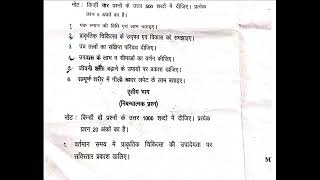 नोट : किन्हीं चार प्रश्नों के उत्तर 500 शब्दों में दीजिए। प्रत्येक
प्रश्न अंकों का है।
स्नान की विधि एवं लाभ बताइए।
2. प्राकृतिक चिकित्सा के उद्भव एवं विकास को समझाइए।
3. पंच तत्वों का संक्षिप्त परिचय दीजिए।
4. उपवास के लाभ व सीमाओं का वर्णन कीजिए।
5. जीवनी शक्ति बढ़ाने के उपायों पर प्रकाश डालिए।
6. सम्पूर्ण शरीर में गीली चादर लपेट के लाभ बताइए।
तृतीय भाग
(निबन्धात्मक प्रश्न)
नोट : किन्हीं दो प्रश्नों के उत्तर 1000 शब्दों में दीजिए। प्रत्येक
प्रश्न 20 अंकों का है।
1. वर्तमान समय में प्राकृतिक चिकित्सा की उपादेयता पर
सविस्तार प्रकाश डालिए।
M